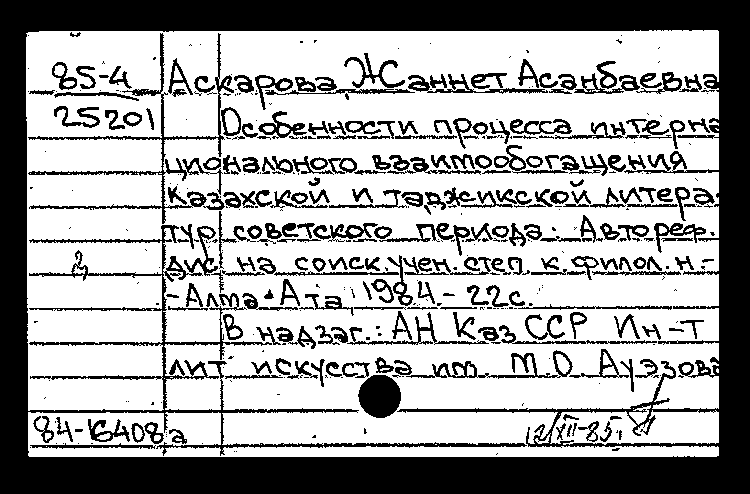 85-4 Аскарова Жаннет Асанбаевна
25201 Особенности процесса интерна-
ционального взаимообогащения
казахской и таджикской литера-
тур советского периода: Автореф.
дис на соиск. учен. степ к. филол. н.-
-Алма-Ата 1984.-22с.
В надзаг.: АН Каз ССР Ин-т
лит искусства им. М.О. Ауэзова
84-16408а 12/XII-85г.